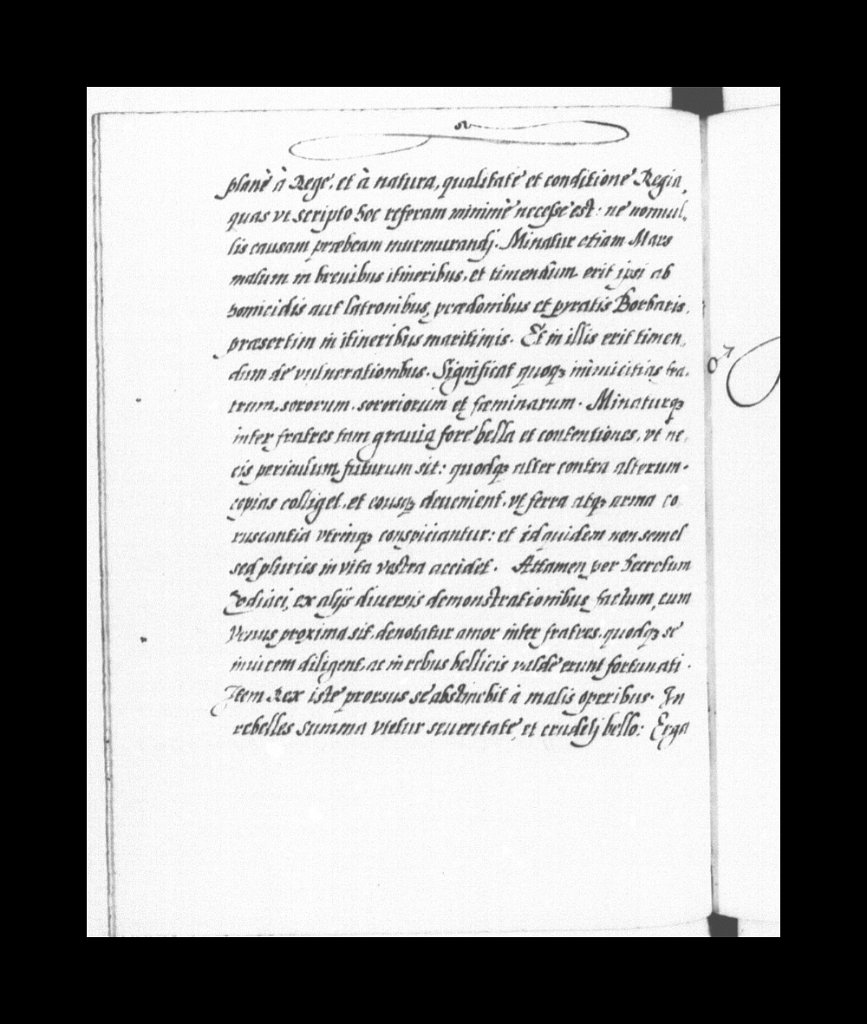 planè à Rege, et à natura, qualitate et conditione Regia,
quas vt scripto hoc referam minimè necesse est: ne nonnul,
lis causam præbeam murmurandj. Minatur etiam Mars
malum in breuibus itineribus, et timendum erit ipsi ab
homicidis aut latronibus, prædonibus et pyratis Barbaris,
præsertim in itineribus maritimis. Et in illis erit timen,
dum de vulnerationibus. Significat quoqꝫ inimicitias fra,
trum, sororum, sororiorum et fæminarum. Minaturqꝫ
inter fratres tam grauia fore bella et contentiones, vt ne,
cis periculum futurum sit: quodqꝫ alter contra alterum
copias colliget, et eousqꝫ deuenient, vt ferra atqꝫ arma co,
ruscantia vtrinqꝫ conspiciantur: et id quidem non semel
sed pluries in vita vestra accidet. Attamen per Secretum
Zodiaci, ex alijs diuersis demonstrationibus factum, cum
Venus proxima sit, denotatur amor inter fratres, quodqꝫ se
inuicem diligent, ac in rebus bellicis valdè erunt fortunati.
Item Rex iste prorsus se abstinebit à malis operibus. In
rebelles summa vtetur seueritate, et crudelj bello: Erga